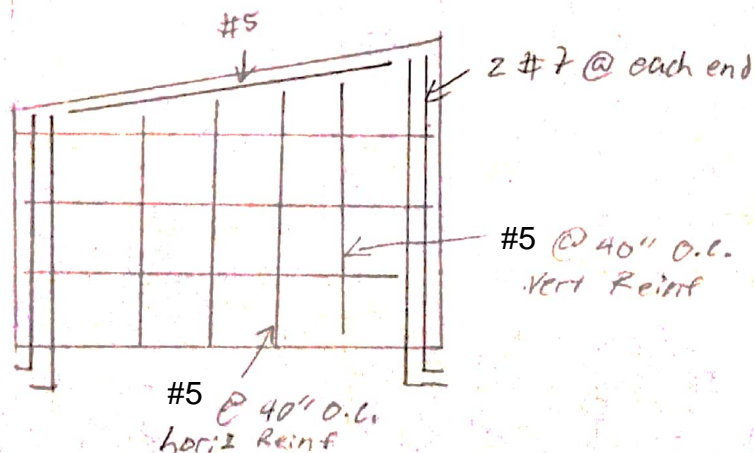 #5
2 #7 @ each end
#5 @ 40" O.C.
Vert Reinf
#5 @ 40" O.C.
horiz Reinf